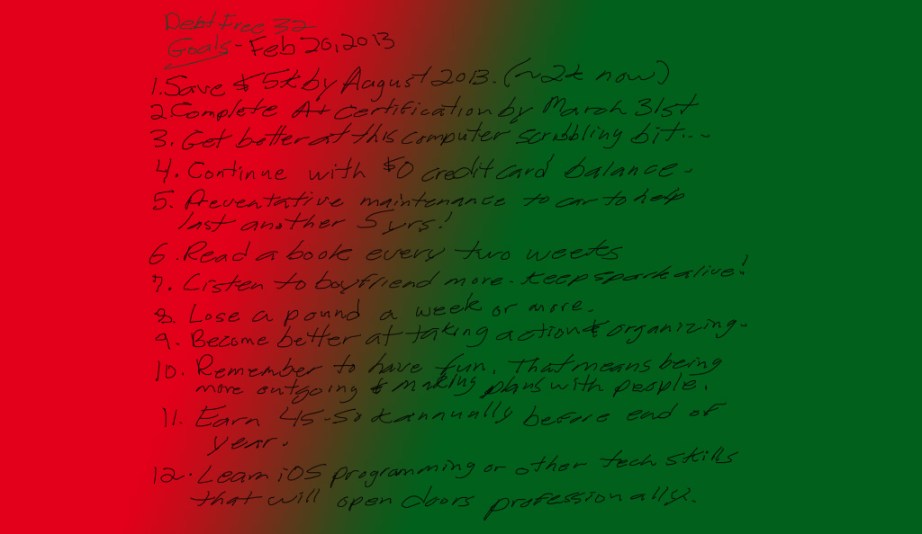 Debt Free 32
Goals - Feb 20, 2013
1. Save $5k by August 2013. (~2k now)
2. Complete A+ Certification by March 31st
3. Get better at this computer scribbling bit...
4. Continue with $0 credit card balance.
5. Preventative maintenance to car to help
last another 5 yrs!
6. Read a book every two weeks
7. Listen to boyfriend more. Keep spark alive!
8. Lose a pound a week or more.
9. Become better at taking action & organizing.
10. Remember to have fun. That means being
more outgoing & making plans with people.
11. Earn 45-50k annually before end of
year.
12. Learn iOS programming or other tech skills
that will open doors professionally.